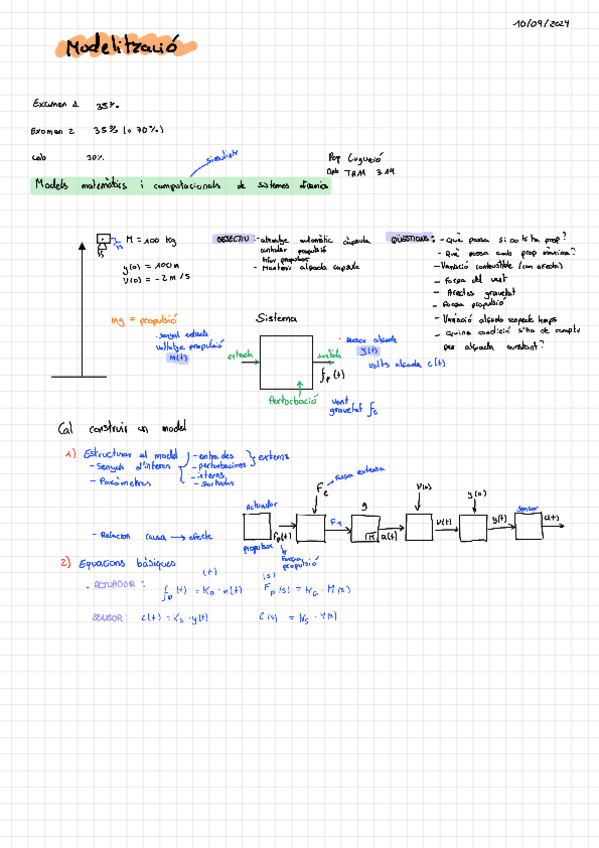 10/09/2024
Modelització
Examen 1 35%
Examen 2 35% (o 70%)
Lab 30%
simulink
Dpt TRM 3.14
Models matemàtics i computacionals de sistemes dinamics
M = 100 Kg
y(0) = 100m
v(0) = -2 m/s
OBJECTIU: - aterratge automàtic càpsula
controlar propulsió
- Mantenir alçada capsula
QÜESTIONS: - Què passa si no hi ha prop?
- Què passa amb prop màxima?
- Variació combustible (con afecta)
- Força del vent
- Afectes gravetat
- Força propulsió
- Variació alçada respecte temps
- Quina condició s'ha de complir
per alçada constant?
mg = propulsió
Sistema
senyal entrada
voltatge propulsió
m(t)
entrada
sortida
sensor alçada
y(t)
volts alçada c(t)
fp(t)
Pertorbació
vent
gravetat
Cal construir un model
1) Estructurar el model
- entrades
- pertorbacions
externs
- Senyals d'interes
- interns
- sortides
- Paràmetres
- Relacion causa → efecte
Actuador
propulsor
fp(t)
Força
propulsió
Fe
força externa
g
a(t)
v(0)
v(t)
y(0)
y(t)
sensor
c(t)
2) Equacions bàsiques
(t) (s)
- ACTUADOR: fp(t) = Ka · m(t) Fp(s) = Ka · M(s)
SENSOR: c(t) = Ks · y(t) C(s) = Ks · Y(s)